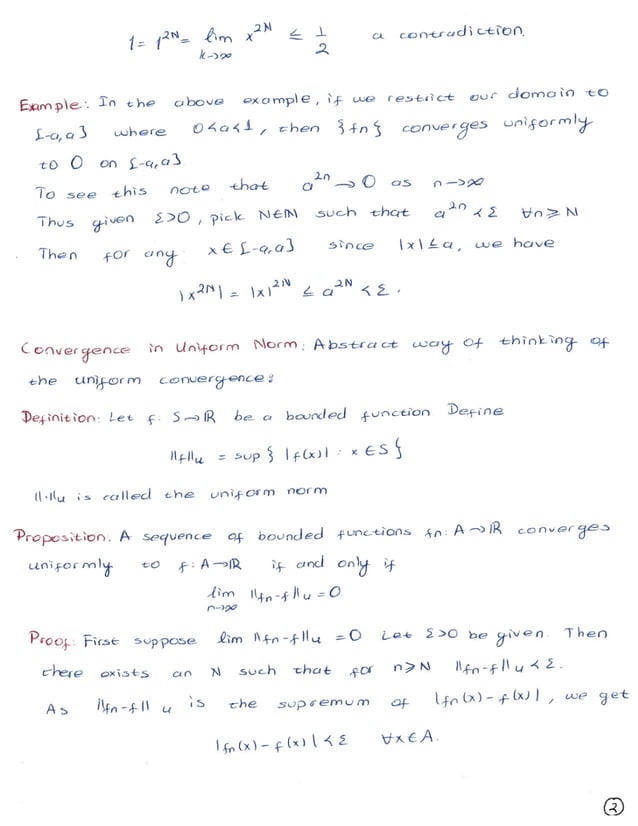 1 = 1^{2N} = lim_{k→∞} x^{2N} ≤ 1/2 a contradiction.
Example: In the above example, if we restrict our domain to
[-a,a] where 0<a<1, then {fn} converges uniformly
to 0 on [-a,a]
To see this note that a^{2n} → 0 as n→∞
Thus given ε>0, pick N∈ℕ such that a^{2n} < ε ∀n≥N
Then for any x∈[-a,a] since |x|≤a, we have
|x^{2N}| = |x|^{2N} ≤ a^{2N} < ε.
Convergence in Uniform Norm: Abstract way of thinking of
the uniform convergence:
Definition: Let f: S→ℝ be a bounded function Define
||f||u = sup { |f(x)| : x ∈ S }
||·||u is called the uniform norm
Proposition: A sequence of bounded functions fn: A→ℝ converges
uniformly to f: A→ℝ if and only if
lim_{n→∞} ||fn-f||u = 0
Proof: First suppose lim ||fn-f||u = 0 Let ε>0 be given. Then
there exists an N such that for n≥N ||fn-f||u < ε.
As ||fn-f||u is the supremum of |fn(x)-f(x)|, we get
|fn(x)-f(x)| < ε ∀x∈A.
2